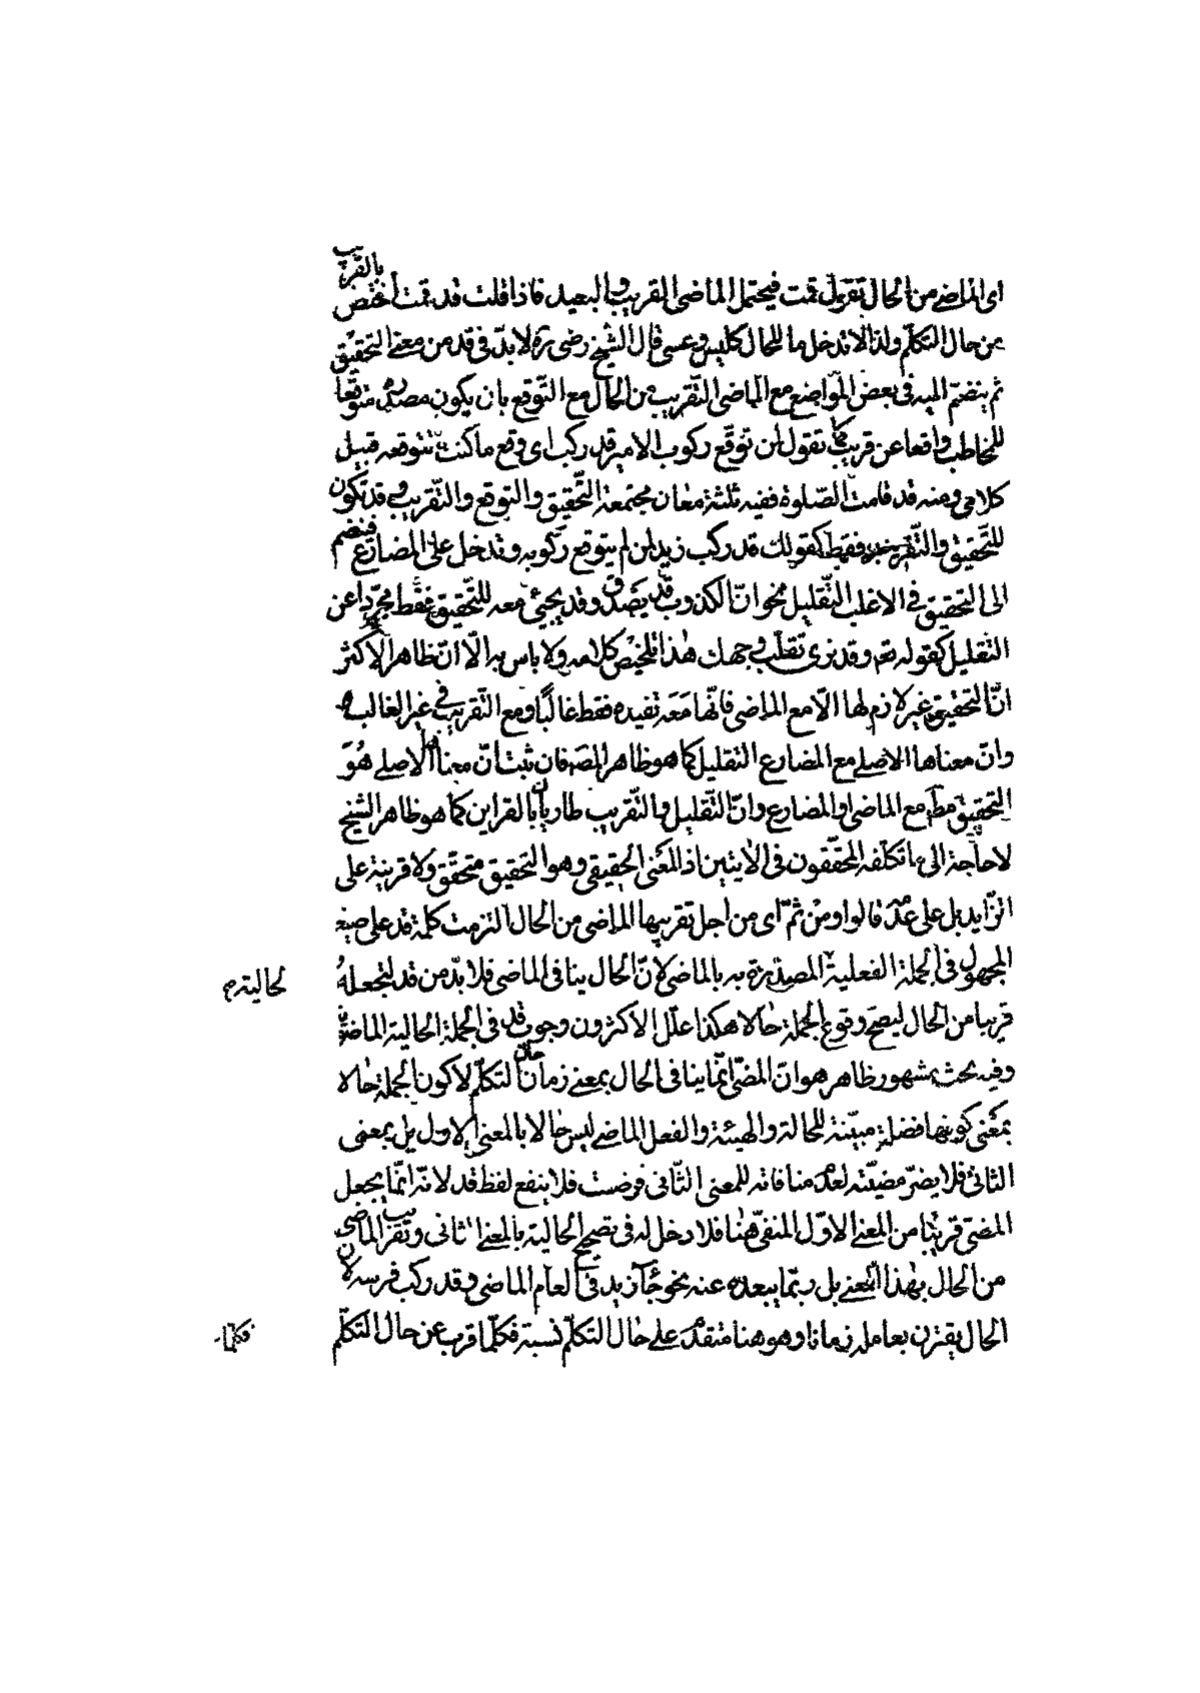 اى الماضى من الحال تقول قمت فيحتمل الماضى القريب والبعيد فاذا قلت قد قمت اختص بالقريب
من حال التكلم ولذا لا تدخل ما للحال كليس وعسى قال الشيخ رضى ره لا بدّ فى قد من معنى التحقيق
ثم ينضمّ اليه فى بعض المواضع مع الماضى التّقريب من الحال مع التّوقع بان يكون مصدره متوقّعا
للمخاطب واقعا عن قريب كما تقول لمن توقّع ركوب الامير قد ركب اى وقع ما كنت تتوقعه قبيل
كلامى ومنه قد قامت الصّلوة ففيه ثلثة معان مجتمعة التّحقيق والتوقع والتّقريب وقد تكون
للتّحقيق والتّقريب فقط كقولك قد ركب زيد لمن لم يتوقع ركوبه وتدخل على المضارع فينضم
الى التحقيق فى الاغلب التّقليل نحو انّ الكذوب قد يصدق وقد يجيئ معه للتّحقيق فقط مجرّدا عن
التقليل كقوله تعم وقد نرى تقلّب وجهك هذا تلخيص كلامه ولا باس به الّا انّ ظاهر الاكثر
انّ التحقيق غير لازم لها الّا مع الماضى فانّها معه تفيده فقط غالبًا ومع التّقريب فى غير الغالب
وانّ معناها الاصلى مع المضارع التقليل كما هو ظاهر المص فان ثبت انّ معناها الاصلى هُوَ
التحقيق مط مع الماضى والمضارع وانّ التّقليل والتّقريب طاريان بالقراين كما هو ظاهر الشيخ
لا حاجة الى ما تكلّفه المحقّقون فى الايتين اذ المعنى الحقيقى وهو التحقيق متحقّق ولا قرينة على
الزّايد بل على عدمه قالوا ومن ثمّ اى من اجل تقريبها الماضى من الحال التزمت كلمة قد على صيغة
المجهول فى الجملة الفعلية المصدّرة به بالماضى لانّ الحال ينافى الماضى فلا بدّ من قد لتجعلهُ
لحالية م
قريبا من الحال ليصحّ وقوع الجملة حالا هكذا علّل الاكثرون وجوب قد فى الجملة الحالية الماضية
وفيه بحث مشهور ظاهر هو انّ المضىّ انّما ينافى الحال بمعنى زمان التكلّم لا كون الجملة حالا
بمعنى كونها فضلة مبيّنة للحالة والهيئة والفعل الماضى ليس حالا بالمعنى الاول بل بمعنى
الثانى فلا يضرّ مضيّته لعدم منافاته للمعنى الثّانى فرضت فلا ينفع لفظ قد لانّه انّما يجعل
المضىّ قريبًا من المعنى الاوّل المنفىّ هنا فلا دخل له فى تصحيح الحالية بالمعنى الثانى وتقريب الماضى
من الحال بهذا المعنى بل ربّما يبعده عنه نحو جآء زيد فى العام الماضى وقد ركب فرسه لان
الحال يقترن بعامله زمانا وهو هنا متقدم على حال التكلّم نسبة فكلّما قرب عن حال التكلّم
فكلما